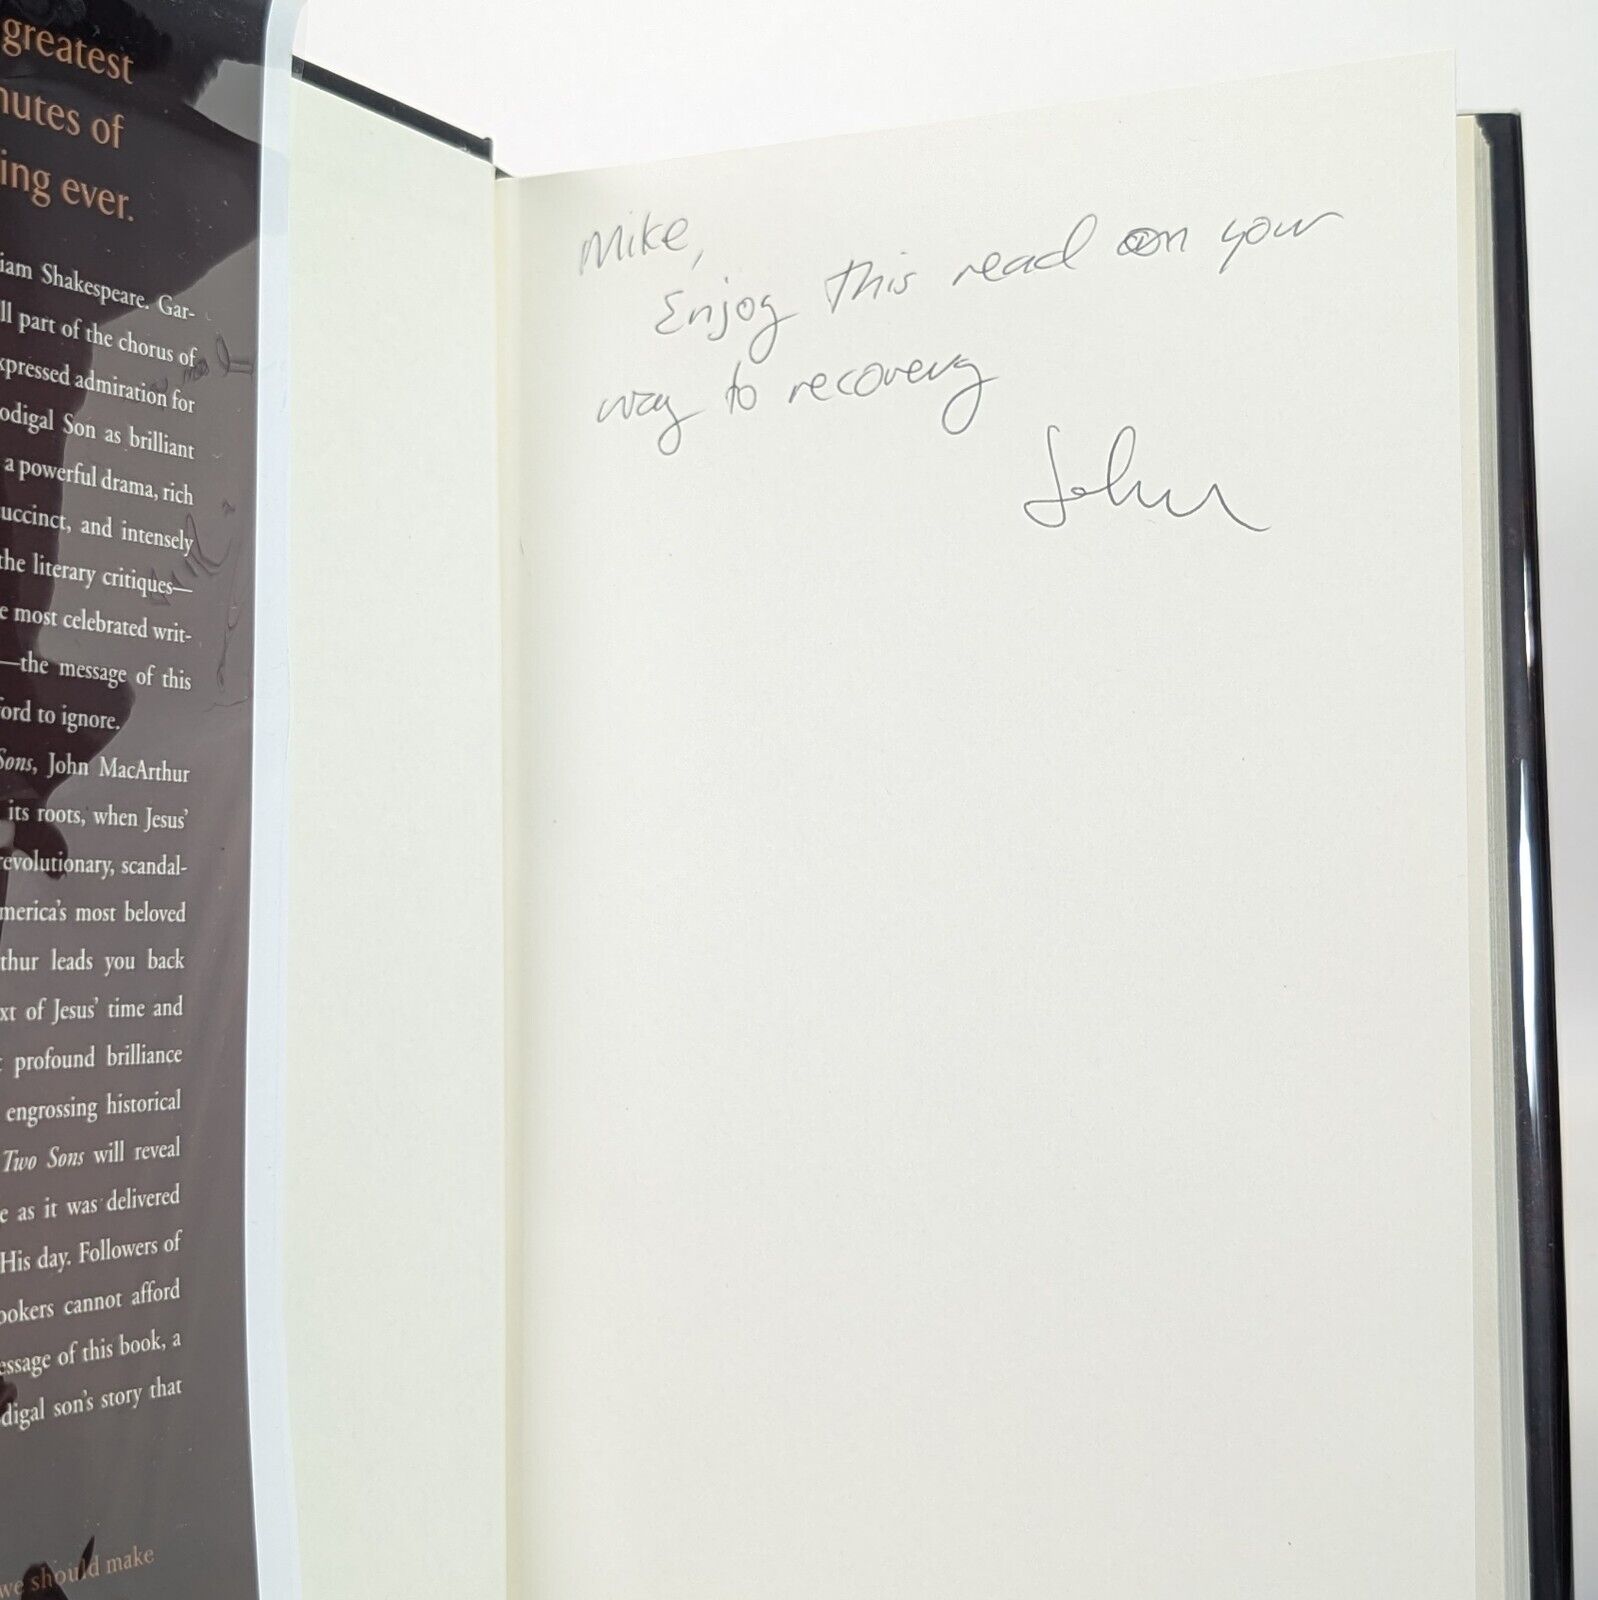 greatest
nutes of
ing ever.
iam Shakespeare. Gar-
ll part of the chorus of
xpressed admiration for
odigal Son as brilliant
a powerful drama, rich
uccinct, and intensely
the literary critiques—
e most celebrated writ-
—the message of this
ford to ignore.
Sons, John MacArthur
its roots, when Jesus'
revolutionary, scandal-
merica's most beloved
thur leads you back
xt of Jesus' time and
profound brilliance
engrossing historical
Two Sons will reveal
e as it was delivered
His day. Followers of
ookers cannot afford
essage of this book, a
digal son's story that
we should make
Mike,
Enjoy this read on your
way to recovery
John